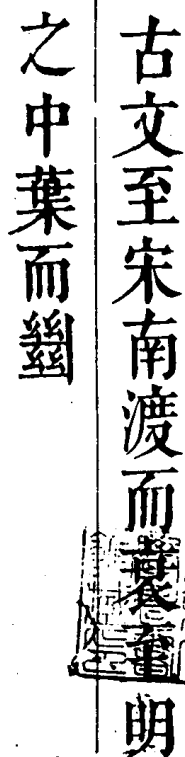 古文至宋南渡而衰至明
之中葉而㡭